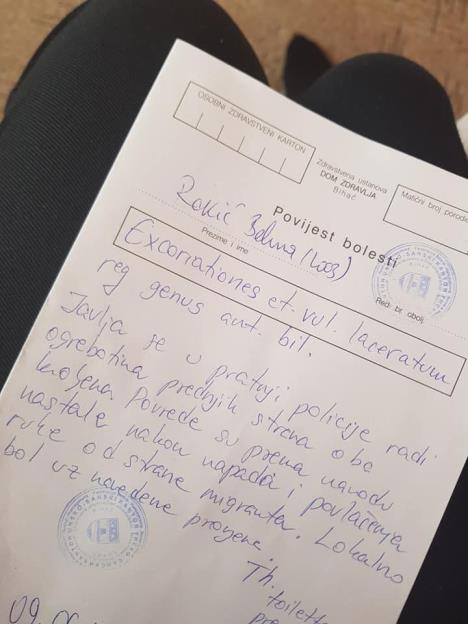 OSOBNI ZDRAVSTVENI KARTON
Zdravstvena ustanova
DOM ZDRAVLJA
Bihać
Matični broj porodice
Povijest bolesti
Prezime i ime
Red. br. obolj.
Excoriationes et vul. laceratum
reg genus ant. bil.
Javlja se u pratnji policije radi
ogrebotina prednjih strana oba
koljena. Povrede su prema navodu
nastale nakon napada i povlačenja
ruke od strane migranta. Lokalno
bol uz navedene promjene.
Th.
toiletta
09.